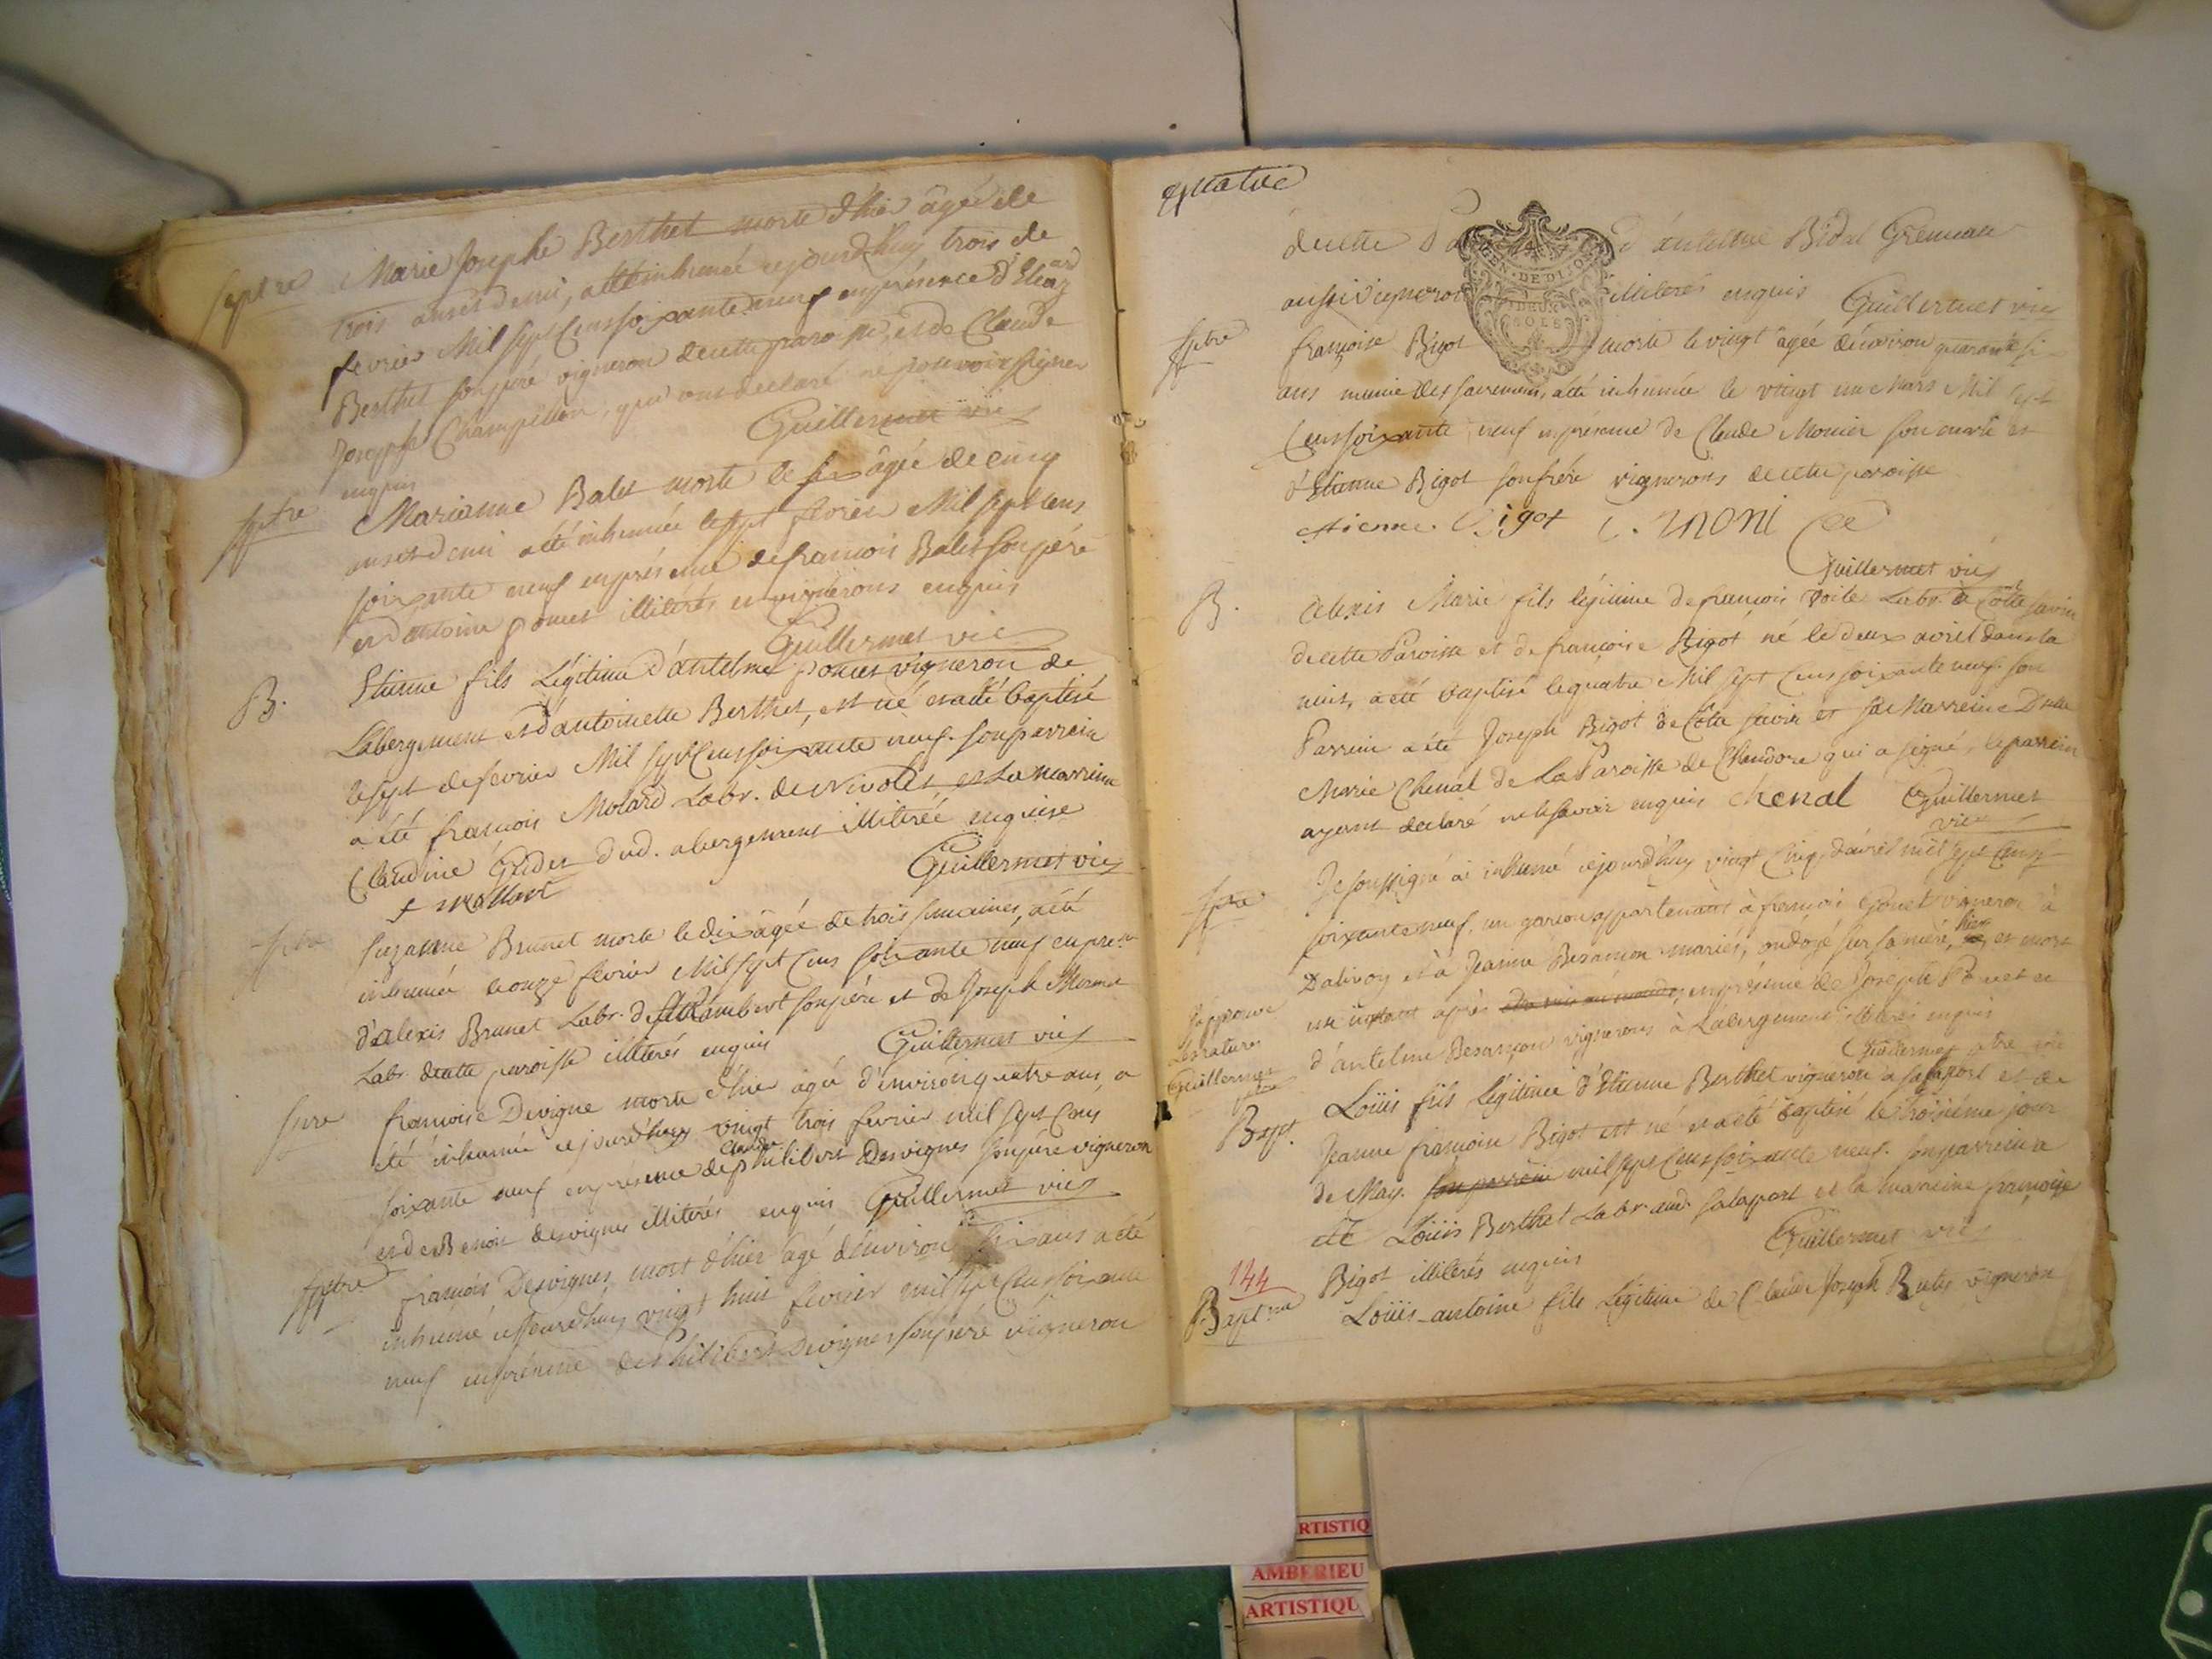 septre Marie Josephe Berthet morte d'hier âgée de
trois ans et demi, a été inhumée ce jourd'huy trois de
fevrier Mil sept Cens soixante neuf en présence d'Eléaz
ard
Berthet son père vigneron de cette paroisse, et de Claude
Joseph Champillon, qui ont declaré ne pouvoir signer
enquis Guillermet vic
sptre Marianne Balet morte le six âgée de cinq
ans et demi a été inhumée le sept fevrier Mil sept cens
soixante neuf en présence de francois Balet son père
et d'antoine poncet illiterés et vignerons enquis
Guillermet vic
B. Etienne fils Légitime d'antelme poncet vigneron de
Labergement et d'antoinette Berthet, est né et a été baptisé
le sept de fevrier Mil sept Cens soixante neuf. son parrein
a été francois Molard Labr. de Nivolet et La marreine
Claudine dud. abergement illiterée enquise
f mollart Guillermet vic
sptre Suzanne Brunet morte le dix âgée de trois semaines, a été
inhumée le onze fevrier Mil sept Cens soixante neuf en présen
d'alexis Brunet Labr. de St Rambert son père et de Joseph Mermet
Labr. de cette paroisse illiterés enquis Guillermet vic
sptre francoise Devigne morte d'hier agée d'environ quatre ans, a
été inhumée ce jourd'huy vingt trois fevrier mil sept Cens
Claude
soixante neuf en présence de philibert Desvignes son père vigneron
et de Benoit desvignes illiterés enquis Guillermet vic
sptre françois Desvignes mort d'hier agé d'environ six ans a été
inhumé ce jourd'huy vingt huit fevrier mil sept Cens soixante
neuf en présence de Philibert Devignes son père vigneron
quatre
de cette Pa d'antelme Bidal Greneau
aussi vigneron illiterés enquis Guillermet vic
GEN. DE DIJON
DEUX
SOLS
sptre françoise Bigot morte le vingt âgée d'environ quarante si
ans munie des sacremens, a été inhumée le vingt un Mars Mil sept
Cens soixante neuf en présence de Claude Monier son mari et
d'Etienne Bigot son frère vignerons de cette paroisse
Etienne. Bigot C. moni
Guillermet vic
B. Alexis Marie fils légitime de francois Labr. à Côte savin
de cette Paroisse et de francoise Bigot né le deux avril dans la
nuit, a été baptisé le quatre Mil sept Cens soixante neuf. son
Parrein a été Joseph Bigot de Côta savin et sa Marreine Delle
Marie Chenal de La Paroisse de Chandore qui a signé, le parrein
ayant declaré ne le savoir enquis chenal Guillermet
vic
sptre Je soussigné ai inhumé ce jourd'huy vingt Cinq d'avril mil sept Cens
soixante neuf, un garcon appartenant à francois Gonet vigneron à
hier
Dalivoy et à Jeanne Besancon mariés, ondoyé sur sa mère, et mort
un instant après en présence de Joseph Ponet et
d'antelme Besançon vignerons à Labergement illiterés enquis
J'approuve
Les ratures
Guillermet
ptre
Guillermet ptre vic
Bapt. Loüis fils légitime d'Etienne Berthet vigneron à salaport et de
Jeanne françoise Bigot est né et a été baptisé le troisiéme jour
de May. son parrein mil sept Cens soixante neuf. son parrein a
été Loüis Berthet Labr. aud. salaport et la marreine françoise
Bigot illiterés enquis Guillermet vic
144
Baptme Loüis-antoine fils Légitime de Claude Joseph vigneron
RTISTIQ
AMBERIEU
ARTISTIQU